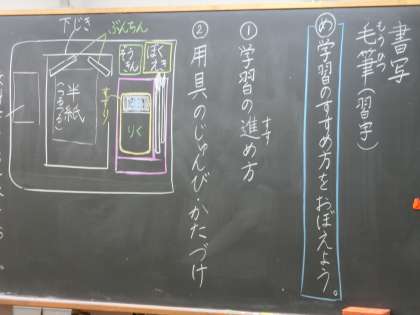 書写
毛筆(習字)
もうひつ
め 学習のすすめ方をおぼえよう。
① 学習の進め方
すす
② 用具のじゅんび・かたづけ
下じき
ぶんちん
半紙
(つるつる)
すずり
りく
ぞうきん
ぼくえき